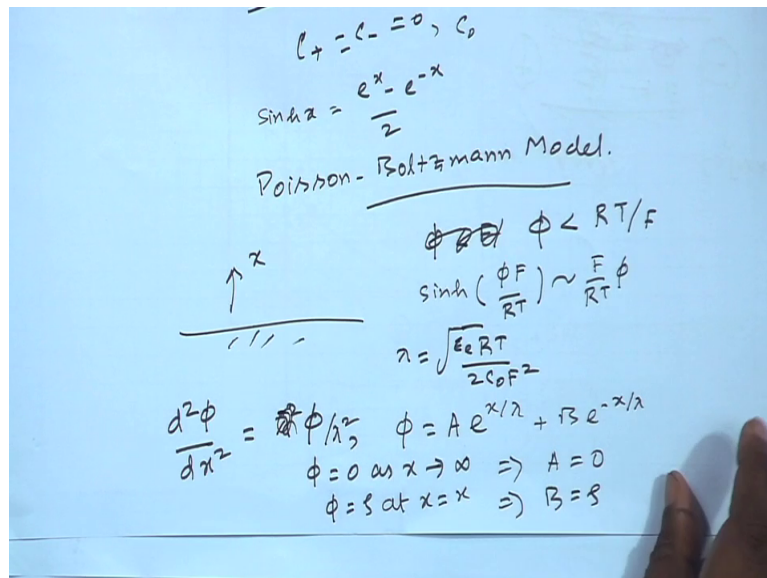 C₊ = C₋ = 0, C₀
sinh x = (eˣ - e⁻ˣ)/2
Poisson-Boltzmann Model.
ϕ < RT/F
x
sinh (ϕF/RT) ~ F/RT ϕ
λ = √(εₑRT/2C₀F²)
d²ϕ/dx² = ϕ/λ², ϕ = A e^{x/λ} + B e^{-x/λ}
ϕ = 0 as x → ∞ ⇒ A = 0
ϕ = ζ at x = x ⇒ B = ζ